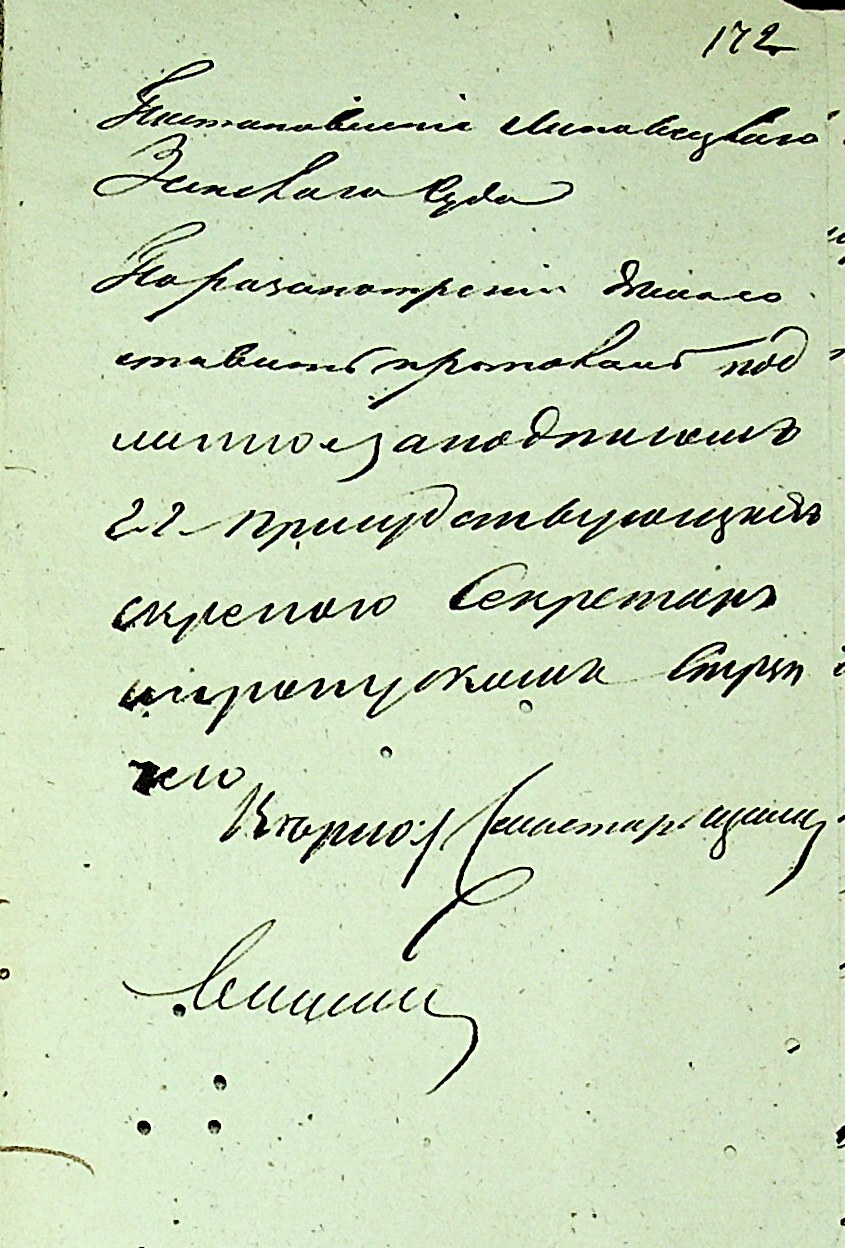 172
Постановленіе Липовецкаго
Земскаго Суда
По разсмотреніи дела со
ставить протоколъ под
линною заподписомъ
г.г. присудствующихъ
скрепою Секретаря
ипропускомъ Стряп
чего
Верно: